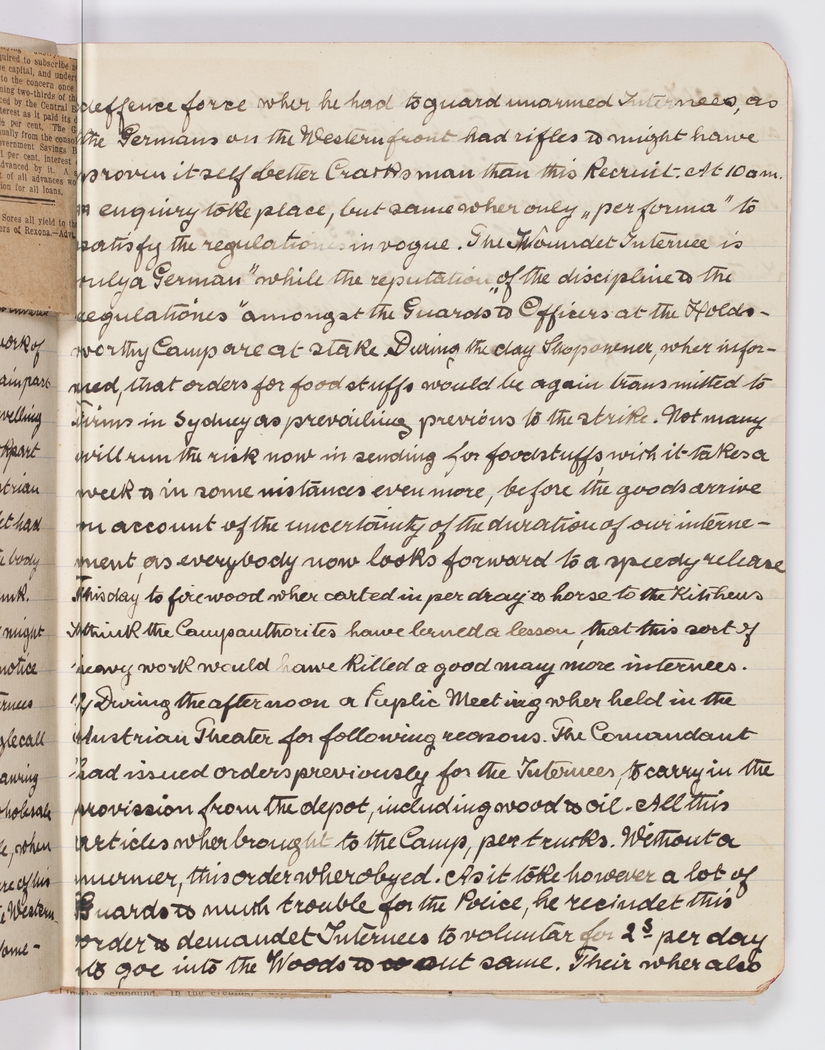 quired to subscribe
e capital, and under
to the concern once
ning two-thirds of th
ced by the Central B
terest as it paid its
per cent. The G
nually from the conso
vernment Savings B
per cent. interest
advanced by it. A
t of all advances wo
tion for all loans.
Sores all yield to th
ers of Rexona.—Adv
work of
ain part
welling
trian
et had
body
unk.
might
notice
rnees
gle call
awing
wholesale
le, when
re of his
Western
ome-
deffence force wher he had to guard unarmed Internees, as
the Germans on the Western front had rifles & might hawe
proven itself better Cracksman than this Recruit. At 10 am.
an enquiry toke place, but same wher only „per forma" to
satisfy the regulationes in vogue. The Woundet Internee is
only a German" while the reputation "of the discipline & the
regulationes" amongst the Guards & Officers at the Holds-
worthy Camp are at stake. During the day Shopowener, wher infor-
med, that orders for foodstuffs would be again transmitted to
Firms in Sydney as prevailing previous to the strike. Not many
will run the risk now in sending for foodstuffs, wich it takes a
week & in some nistances even more, before the goods arrive
on account of the uncertainty of the duration of our interne-
ment, as everybody now looks forward to a speedy release
This day to firewood wher carted in per dray & horse to the Kitchens
I think the Campauthorites hawe lerned a lesson, that this sort of
heavy work would hawe killed a good many more internees.
During the afternoon a Puplic Meeting wher held in the
Austrian Theater for following reasons. The Comandant
had issued orders previously for the Internees, to carry in the
provission from the depot, including wood & oil. All this
articles wher brought to the Camp, per trucks. Without a
murmer, this order wher obyed. As it toke however a lot of
Guards & much trouble for the Police, he recindet this
order & demandet Internees to voluntar for 2s per day
to goe into the Woods & cut same. Their wher also
in the compound. In the